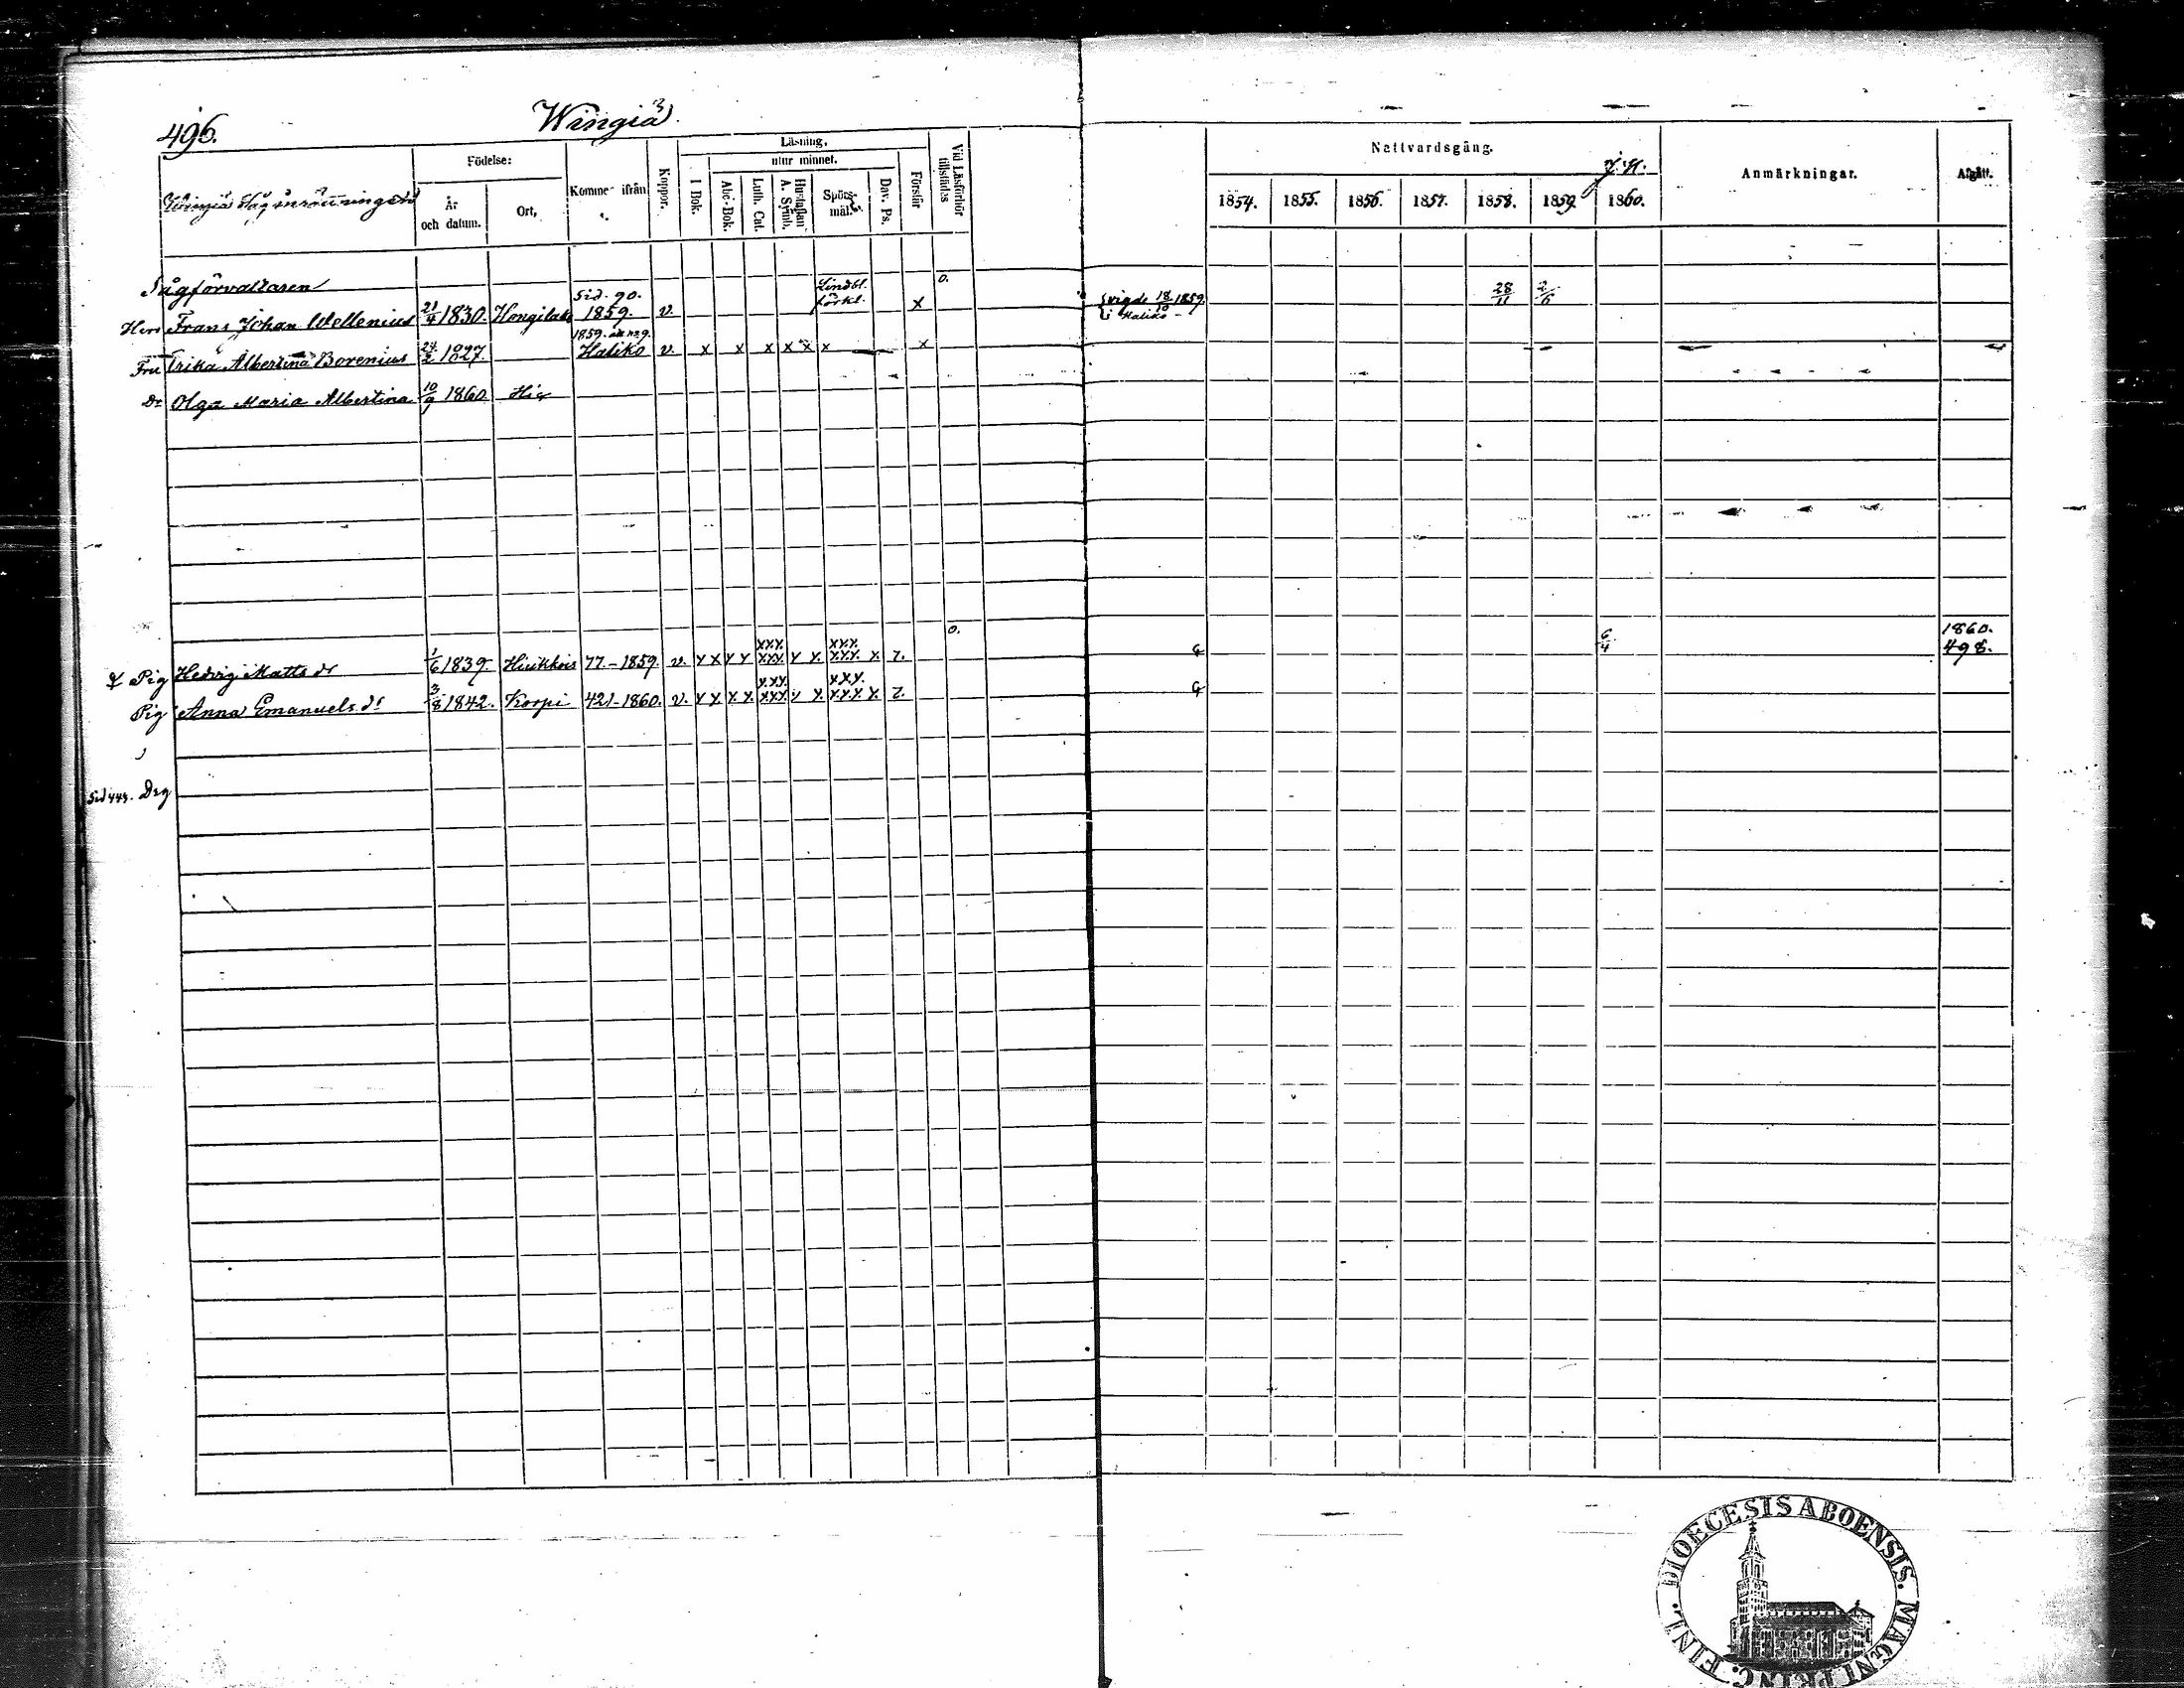 496. Wingiä
Wingiä Såg inrättningen
Födelse:
År och datum.
Ort,
Kommen ifrån
Koppor.
Läsning,
utur minnet.
I Bok.
Abc-Bok.
Luth. Cat.
Hustaflan A. Symb.
Spörsmål.
Dav. Ps.
Förstår
Vid Läsförhör tillstädes
Nattvardsgång.
1854. 1855. 1856. 1857. 1858. 1859. 1860.
Anmärkningar.
Afgått.
Sågförvaltaren Sid. 90. Lindbl. 0.
Herr Frans Johan Wellenius 21/4 1830. Hongilax 1859. v. förkl. x {vigde 18/10 1859. i Haliko 28/11 2/6
Fru Erika Albertina Borenius 24/2 1827. 1859. Haliko v. x x x x x x x
Dr Olga Maria Albertina 10/9 1860 Hic
0. 1860.
Pig Hedvig Matts dr 1/6 1839. 77.-1859. v. x x x x xxx xxx x x xxx xxx x 7. G 6/4 498.
Pig Anna Emanuels dr 3/8 1842. Korpi 421-1860. v. x x x x xxx xxx x x xxx xxx x 7. G
Sid 443. Drg
DIOECESIS ABOENSIS. MAGNI PRINC. FINL.